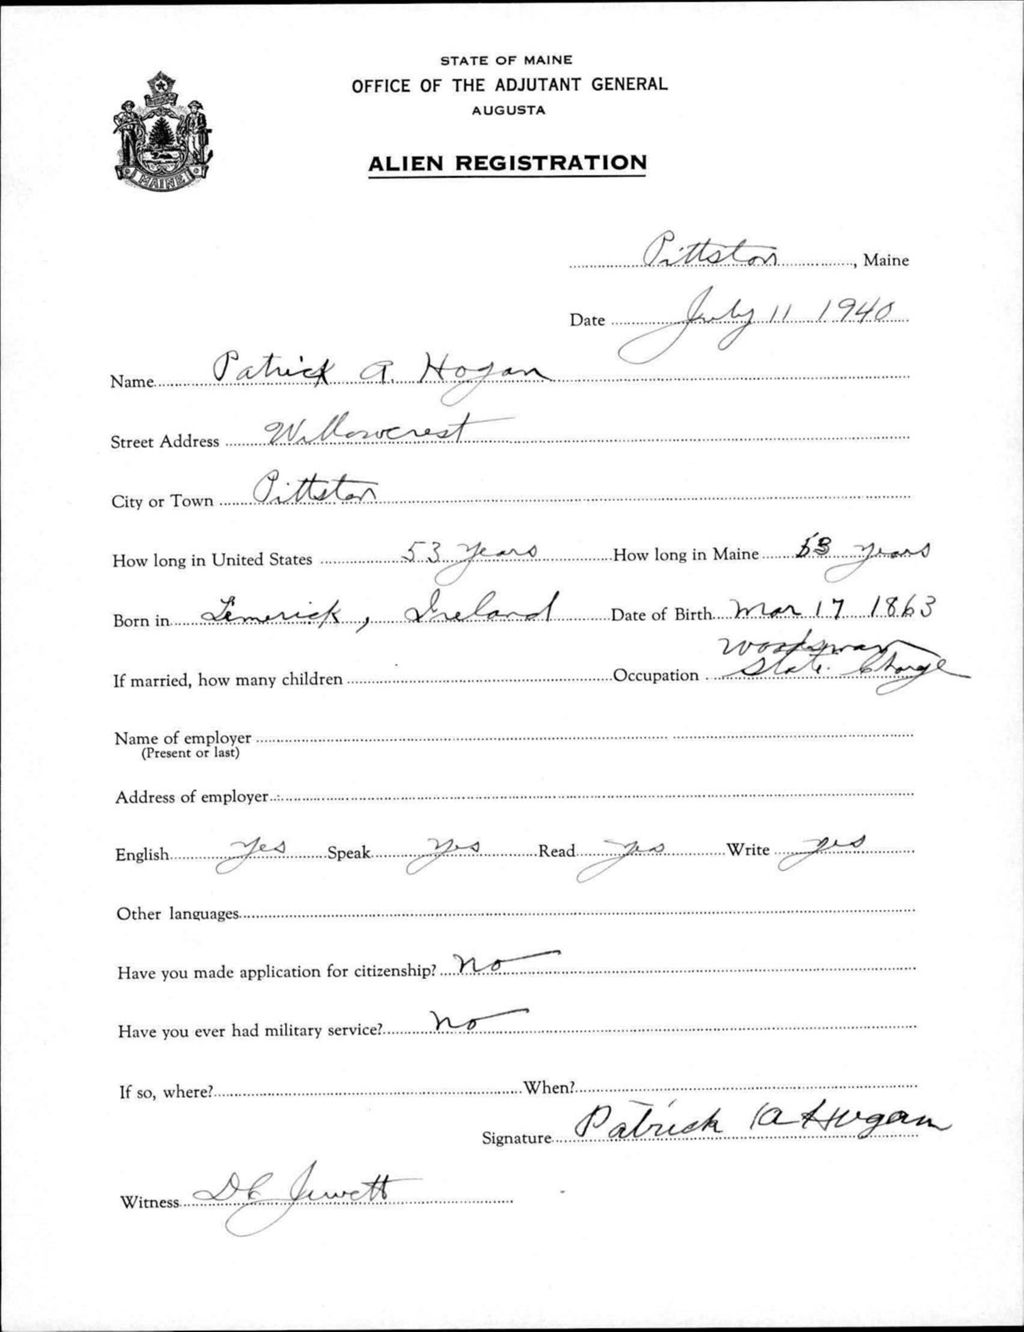 STATE OF MAINE
OFFICE OF THE ADJUTANT GENERAL
AUGUSTA
ALIEN REGISTRATION
MAINE
Pittston, Maine
Date July 11 1940
Name Patrick A. Hogan
Street Address Willowcrest
City or Town Pittston
How long in United States 53 Years How long in Maine 53 years
Born in Limerick, Ireland Date of Birth Mar 17 1863
Woodsman
If married, how many children Occupation State Charge
Name of employer
(Present or last)
Address of employer
English Yes Speak Yes Read Yes Write Yes
Other languages
Have you made application for citizenship? No
Have you ever had military service? No
If so, where? When?
Signature Patrick A Hogan
Witness D C Jewett